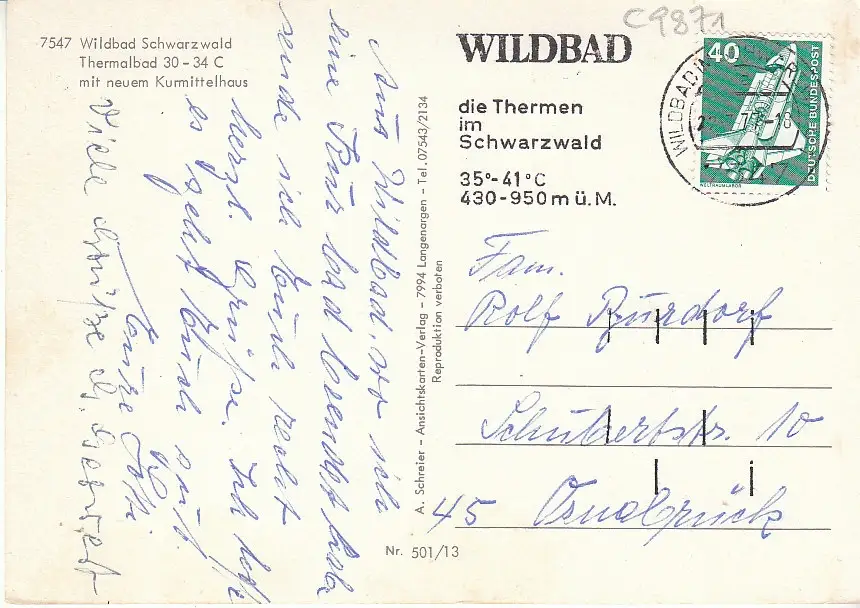 7547 Wildbad Schwarzwald
Thermalbad 30 – 34 C
mit neuem Kurmittelhaus
Aus Wildbad, wo ich
eine Kur bad beendet habe
sende ich Euch recht
herzl. Grüße. Ich hoffe
es geht Euch gut
Eure
Viele Grüße
A. Schreier – Ansichtskarten-Verlag – 7994 Langenargen – Tel. 07543/2134
Reproduktion verboten
Nr. 501/13
C9871
WILDBAD
die Thermen
im
Schwarzwald
35°-41°C
430-950m ü.M.
WILDBAD
40
DEUTSCHE BUNDESPOST
WELTRAUMLABOR
Fam.
Rolf Burdorf
Schubertstr. 10
45 Osnabrück